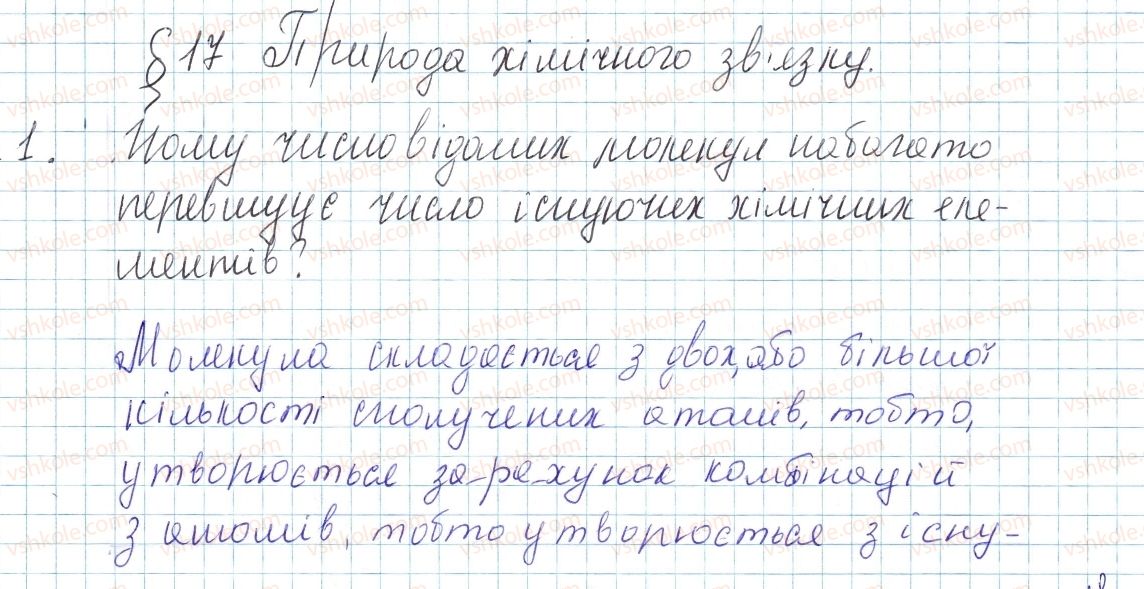 § 17 Природа хімічного зв'язку.
1. Чому число відомих молекул набагато
перевищує число існуючих хімічних еле-
ментів?
Молекула складається з двох, або більшої
кількості сполучених атомів, тобто,
утворюється за-ра-хунок комбінацій
з атомів, тобто утворюється з існу-